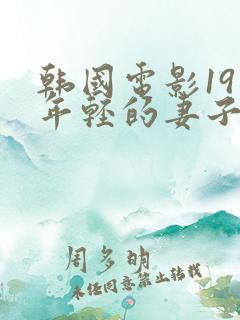 韩国电影19
年轻的妻子
周多明
未经同意禁止转载